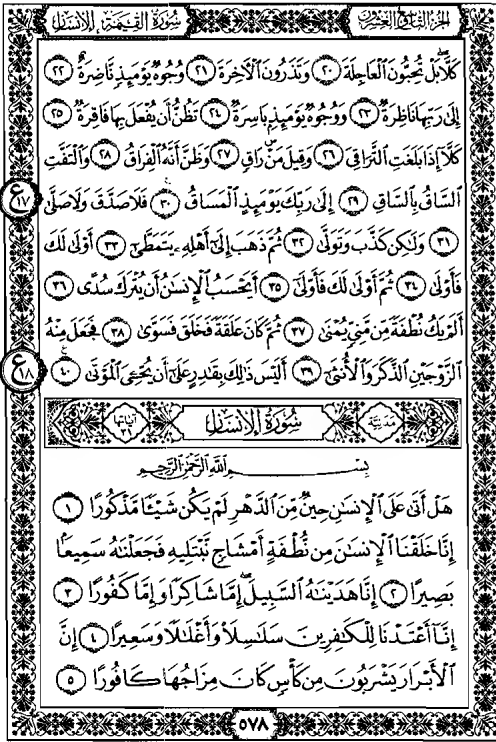 الجزء التاسع والعشرون سورة القيمة، الإنسان
كَلَّا بَلْ تُحِبُّونَ ٱلْعَاجِلَةَ ٢٠ وَتَذَرُونَ ٱلْآخِرَةَ ٢١ وُجُوهٌ يَوْمَئِذٍ نَّاضِرَةٌ ٢٢
إِلَىٰ رَبِّهَا نَاظِرَةٌ ٢٣ وَوُجُوهٌ يَوْمَئِذٍۭ بَاسِرَةٌ ٢٤ تَظُنُّ أَن يُفْعَلَ بِهَا فَاقِرَةٌ ٢٥
كَلَّآ إِذَا بَلَغَتِ ٱلتَّرَاقِىَ ٢٦ وَقِيلَ مَنْ رَاقٍ ٢٧ وَظَنَّ أَنَّهُ ٱلْفِرَاقُ ٢٨ وَٱلْتَفَّتِ
ٱلسَّاقُ بِٱلسَّاقِ ٢٩ إِلَىٰ رَبِّكَ يَوْمَئِذٍ ٱلْمَسَاقُ ٣٠ فَلَا صَدَّقَ وَلَا صَلَّىٰ
٣١ وَلَٰكِن كَذَّبَ وَتَوَلَّىٰ ٣٢ ثُمَّ ذَهَبَ إِلَىٰٓ أَهْلِهِۦ يَتَمَطَّىٰٓ ٣٣ أَوْلَىٰ لَكَ
فَأَوْلَىٰ ٣٤ ثُمَّ أَوْلَىٰ لَكَ فَأَوْلَىٰٓ ٣٥ أَيَحْسَبُ ٱلْإِنسَٰنُ أَن يُتْرَكَ سُدًى ٣٦
أَلَمْ يَكُ نُطْفَةً مِّن مَّنِىٍّ يُمْنَىٰ ٣٧ ثُمَّ كَانَ عَلَقَةً فَخَلَقَ فَسَوَّىٰ ٣٨ فَجَعَلَ مِنْهُ
ٱلزَّوْجَيْنِ ٱلذَّكَرَ وَٱلْأُنثَىٰٓ ٣٩ أَلَيْسَ ذَٰلِكَ بِقَٰدِرٍ عَلَىٰٓ أَن يُحْـِۧىَ ٱلْمَوْتَىٰ ٤٠
ع ١٧
ع ١٨
مدنية سورة الإنسان آياتها ٣١
بِسْمِ ٱللَّهِ ٱلرَّحْمَٰنِ ٱلرَّحِيمِ
هَلْ أَتَىٰ عَلَى ٱلْإِنسَٰنِ حِينٌ مِّنَ ٱلدَّهْرِ لَمْ يَكُن شَيْـًٔا مَّذْكُورًا ١
إِنَّا خَلَقْنَا ٱلْإِنسَٰنَ مِن نُّطْفَةٍ أَمْشَاجٍ نَّبْتَلِيهِ فَجَعَلْنَٰهُ سَمِيعًۢا
بَصِيرًا ٢ إِنَّا هَدَيْنَٰهُ ٱلسَّبِيلَ إِمَّا شَاكِرًا وَإِمَّا كَفُورًا ٣
إِنَّآ أَعْتَدْنَا لِلْكَٰفِرِينَ سَلَٰسِلَا۟ وَأَغْلَٰلًا وَسَعِيرًا ٤ إِنَّ
ٱلْأَبْرَارَ يَشْرَبُونَ مِن كَأْسٍ كَانَ مِزَاجُهَا كَافُورًا ٥
٥٧٨